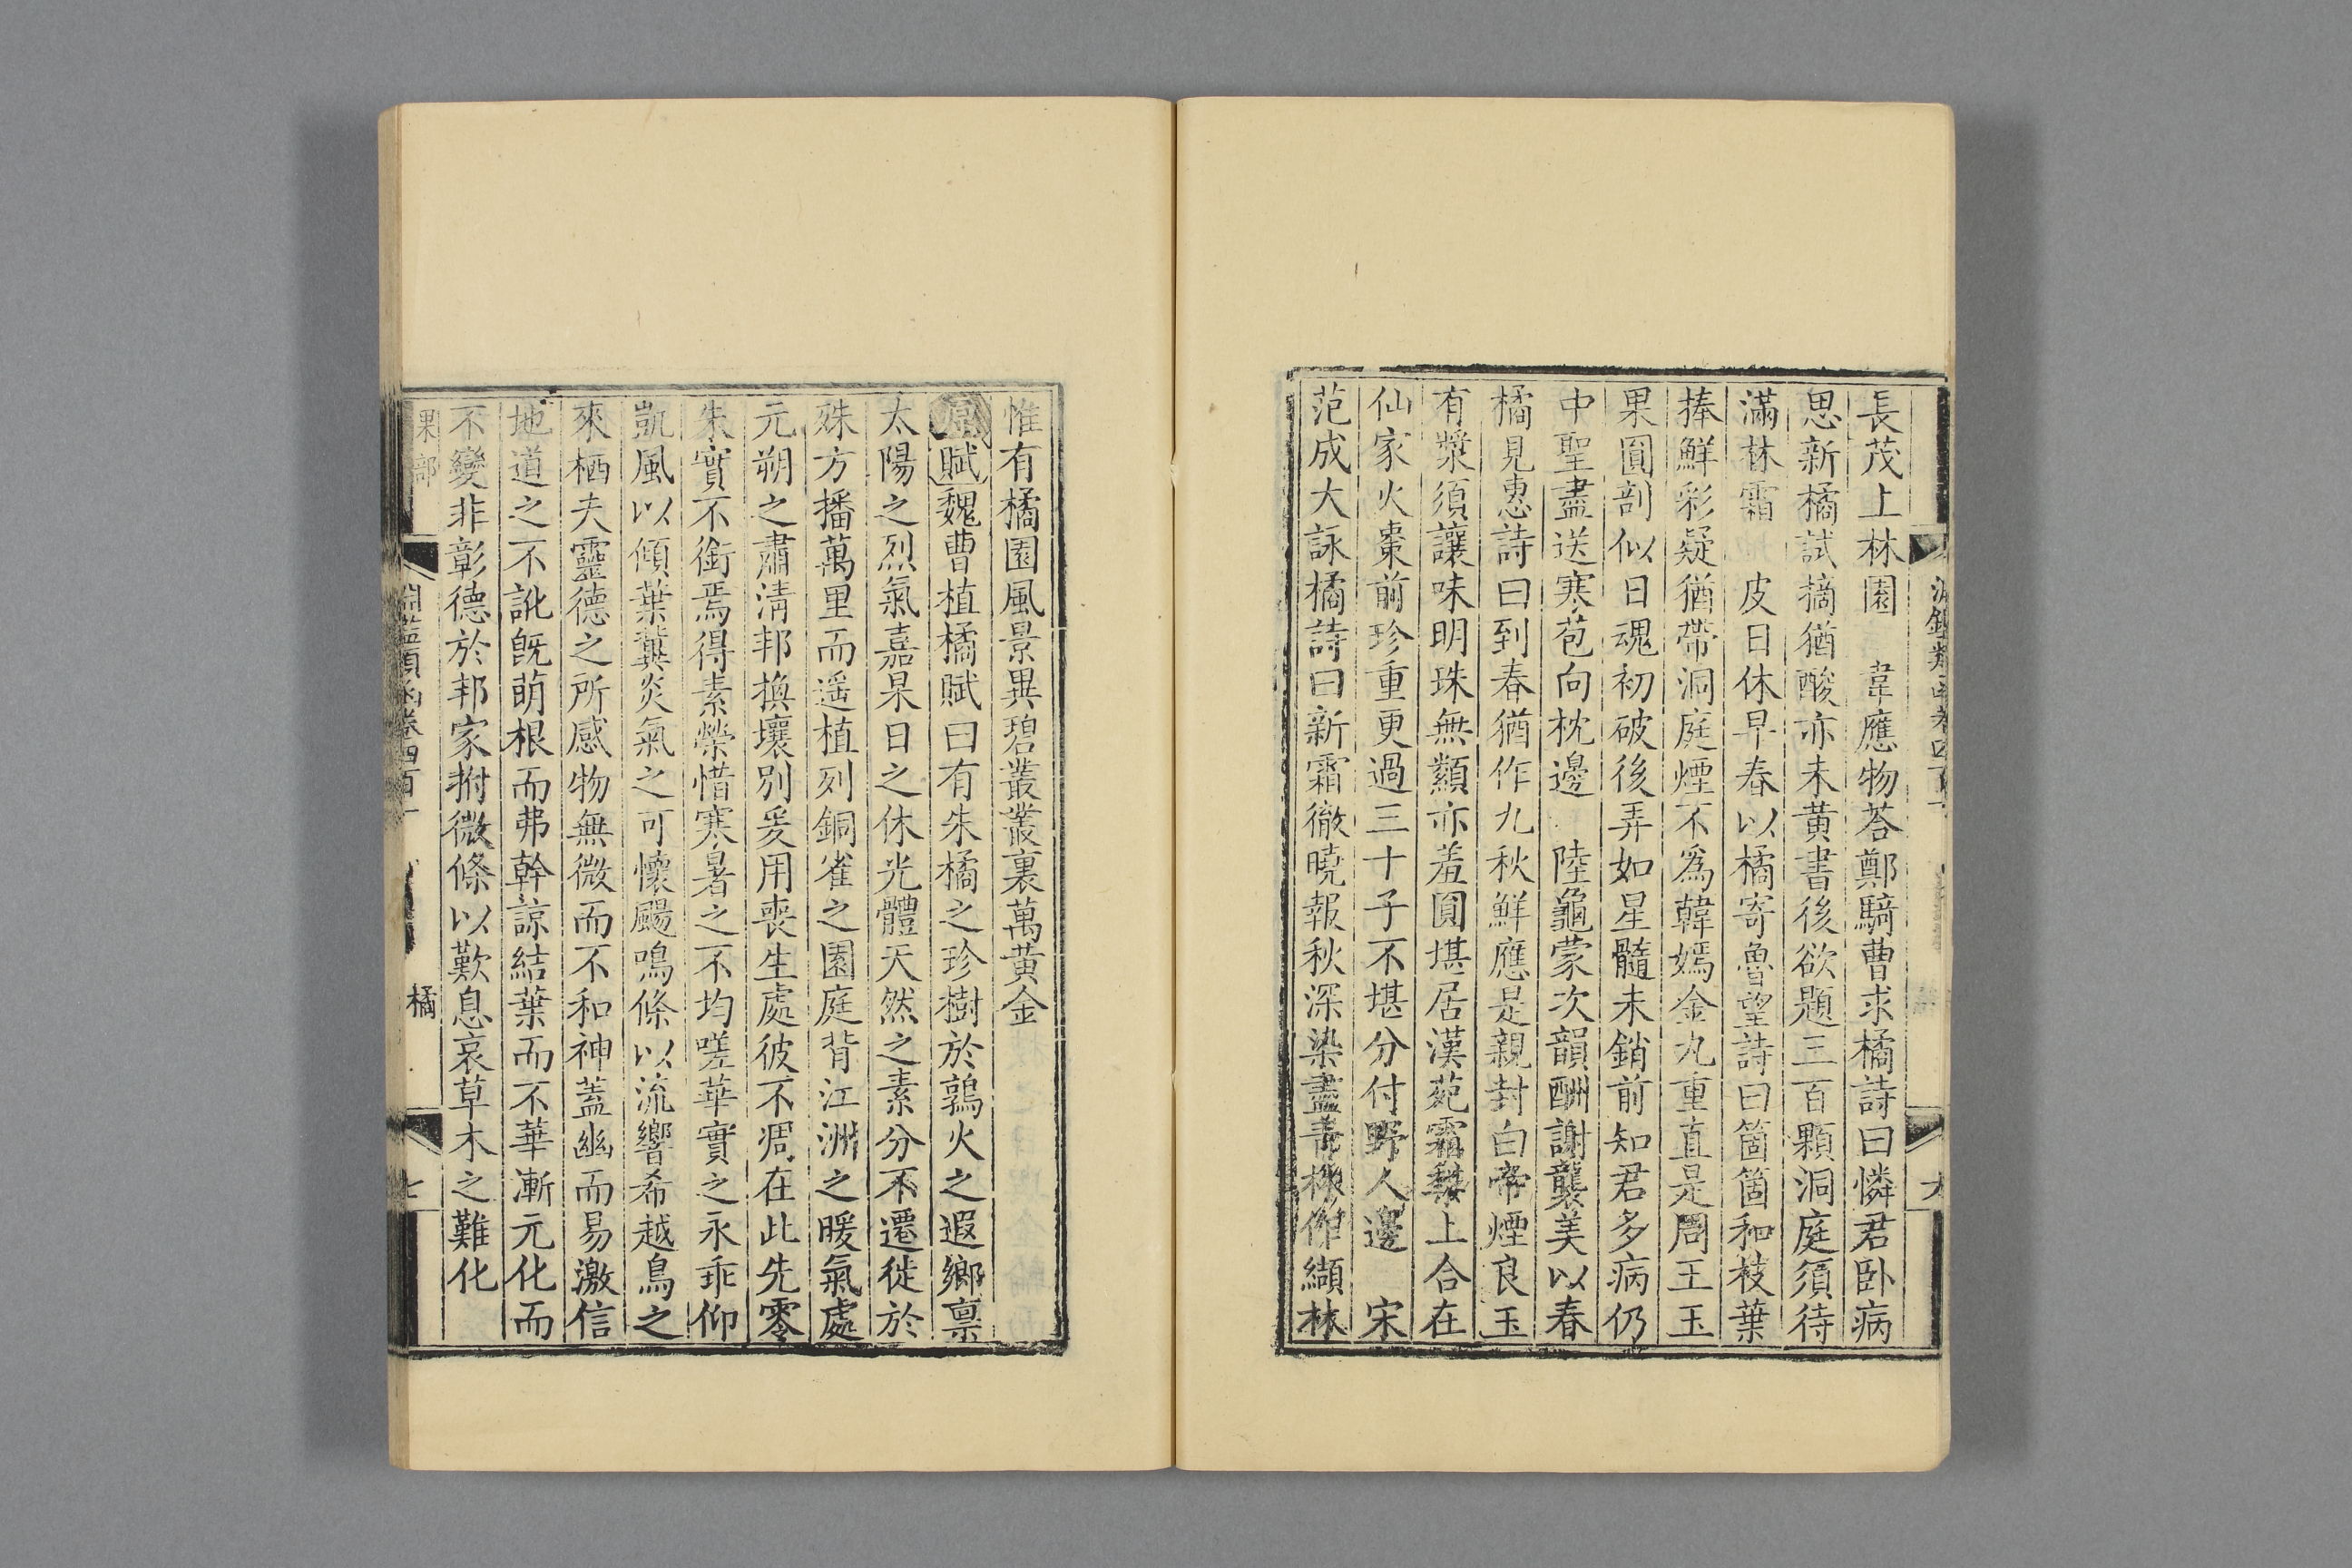 長茂上林園　韋應物荅鄭騎曹求橘詩曰憐君卧病
思新橘試摘猶酸亦未黃書後欲題三百顆洞庭須待
滿林霜　皮日休早春以橘寄魯望詩曰箇箇和枝葉
捧鮮彩疑猶帶洞庭煙不爲韓嫣金丸重直是周王玉
果圓剖似日魂初破後弄如星髓未銷前知君多病仍
中聖盡送寒苞向枕邊　陸龜蒙次韻酬謝襲美以春
橘見惠詩曰到春猶作九秋鮮應是親封白帝煙良玉
有漿須讓味明珠無纇亦羞圓堪居漢苑霜棃上合在
仙家火棗前珍重更過三十子不堪分付野人邊　宋
范成大詠橘詩曰新霜徹曉報秋深染盡青林作纈林
惟有橘園風景異碧叢叢裏萬黃金
原賦魏曹植橘賦曰有朱橘之珍樹於鶉火之遐鄉禀
太陽之烈氣嘉杲日之休光體天然之素分不遷徙於
殊方播萬里而遥植列銅雀之園庭背江洲之暖氣處
元朔之肅清邦換壤別爰用喪生處彼不凋在此先零
朱實不銜焉得素榮惜寒暑之不均嗟華實之永乖仰
凱風以傾葉冀炎氣之可懷颺鳴條以流響希越鳥之
來栖夫靈德之所感物無微而不和神蓋幽而易激信
地道之不訛旣萌根而弗幹諒結葉而不華漸元化而
不變非彰德於邦家拊微條以歎息哀草木之難化
果部　淵鑑類函卷四百一　橘　七